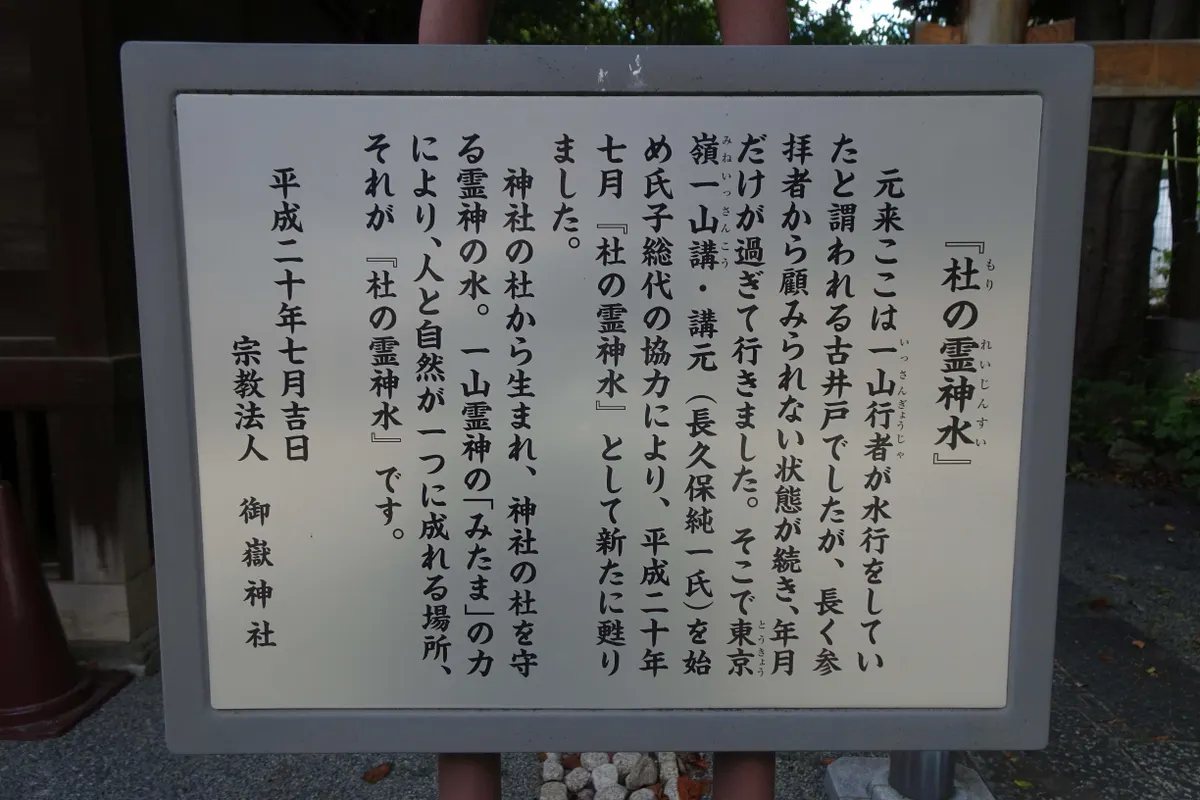 『杜の霊神水』
元来ここは一山行者が水行をしてい
たと謂われる古井戸でしたが、長く参
拝者から顧みられない状態が続き、年月
だけが過ぎて行きました。そこで東京
嶺一山講・講元（長久保純一氏）を始
め氏子総代の協力により、平成二十年
七月『杜の霊神水』として新たに甦り
ました。
神社の杜から生まれ、神社の杜を守
る霊神の水。一山霊神の「みたま」の力
により、人と自然が一つに成れる場所、
それが『杜の霊神水』です。
平成二十年七月吉日
宗教法人 御嶽神社